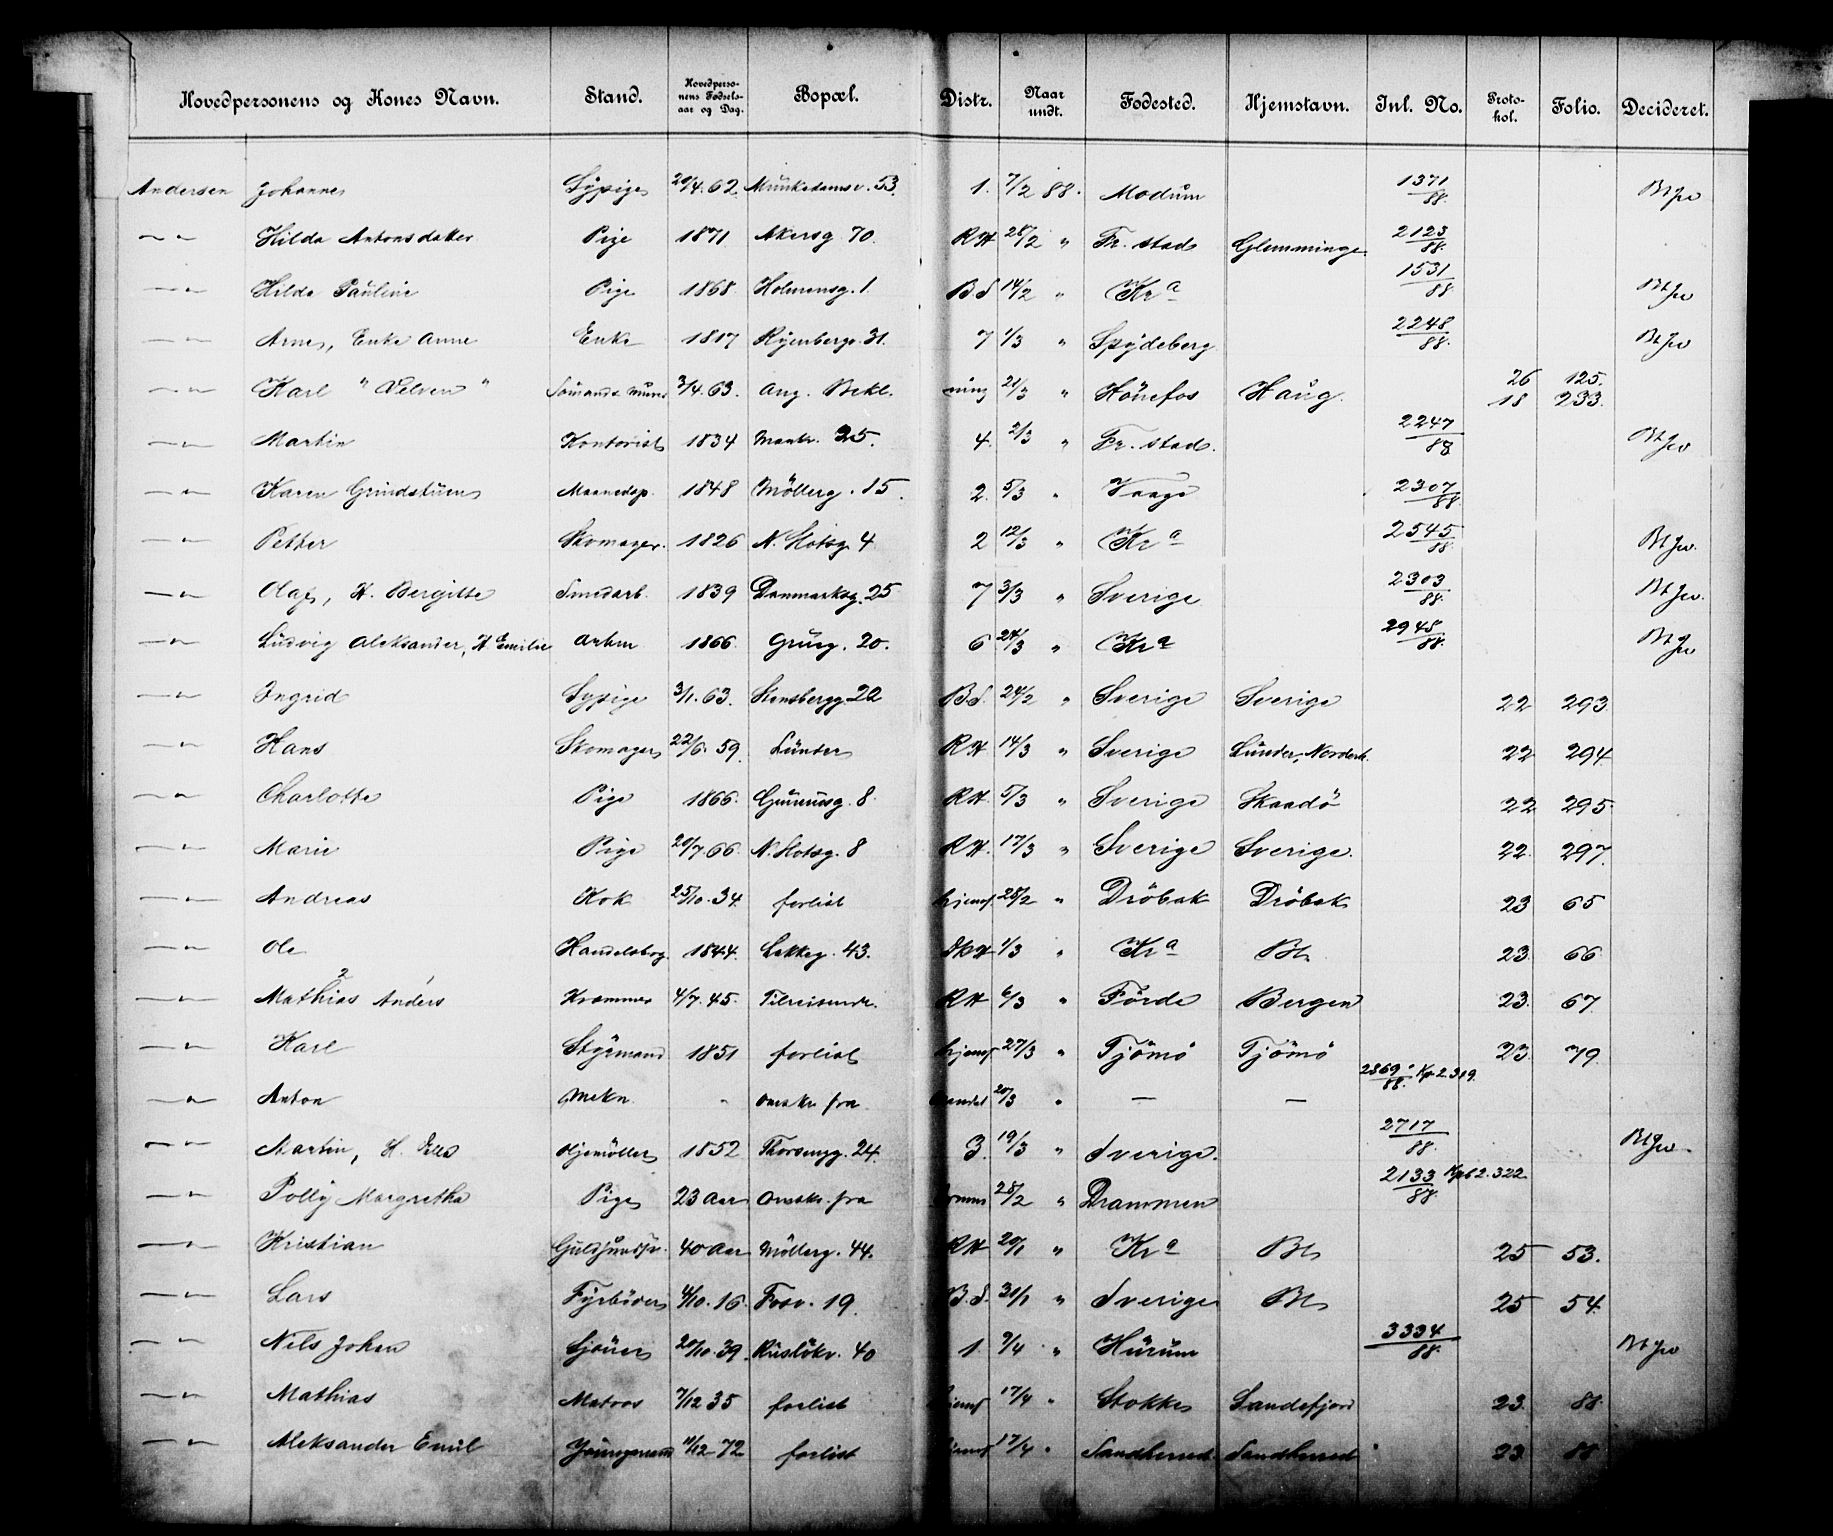 Hovedpersonens og Kones Navn. Stand. Hovedperso-nens Fødsels-aar og Dag. Bopæl. Distr. Naar undt. Fødested. Hjemstavn. Inl. No. Proto-kol. Folio. Decideret.
Andersen Johanne Sypige 20/4.62 Munkedamsv. 53. 1. 7/2 88. Modum 1371/88
— " — Hilda Antonsdatter Pige 1871 Akersg. 70. RH 28/2 " Fr. stad Glemminge 2123/88.
— " — Hilda Pauline Pige 1868. Holmensg. 1. BS 14/2 " Kra 1531/88
— " — Arne, Enke Anne Enke 1817 Ryenbergv. 31. 7 1/3 " Spydeberg 2248/88.
— " — Karl " Nelven " Sømands 3/4.63. Ang. Bekl. ning 21/3 " Hönefos Haug. 26 125.
18 233.
— " — Martin Kontorist 1834 25. 4. 2/3 " Fr. stad. 2247/88
— " — Karen Grindstuen Maanedsp. 1848 Möllerg. 15. 2. 5/3 " Vaage 2307/88.
— " — Petter Skomager. 1826 N. Slotsg. 4 2 12/3 " Kra 2545/88.
— " — Olaf, H. Bergitte Smedarb. 1839 Danmarksg. 25 7 3/3 " Sverige 2303/88.
— " — Ludvig Aleksander, H Emilie Arbm 1866 Grüg. 20. 6 24/3 " Kra 2945/88.
— " — Ingrid Sypige 3/1.63. Stensbergg. 22 BS. 24/2 " Sverige Sverige 22 293.
— " — Hans Skomager 22/6.59. Lunder RH 14/3 " Sverige Lunder, Norderh. 22 294.
— " — Charlotte Pige 1866. 8. RH. 5/3 " Sverige Skaadö 22 295.
— " — Marie Pige 20/7.66. N. Slotsg. 8 RH. 17/3 " Sverige Sverige. 22. 297.
— " — Andreas Kok 25/10.34. forlist hjemf. 28/2 " Dröbak Dröbak 23 65
— " — Ole Handelsbog. 1844. Lakkeg. 43. 1/3 " Kra 23. 66.
— " — Mathias Anders Krammer 4/7.45. Tilreisende. RH 6/3 " Förde Bergen 23. 67.
— " — Karl Styrmand 1851 forlist hjemf. 27/3 " Tjömö Tjömö 23. 79.
— " — Anton Mekn - önske fra 20/3 " — — 2869/88.
— " — Martin, H. Elle Oljemöller 1852 Thorsengg. 24. 3. 19/3 " Sverige. 2717/88.
— " — Polly Margretha Pige 23 Aar fra 28/2 " Drammen 2133
— " — Kristian 40 Aar Möllerg. 44. RH 20/1 " Kra 25 53.
— " — Lars Fyrböder 4/10.16. Fosv. 19. B.S. 31/1 " Sverige 25 54.
— " — Nils Johan Sjöuer 20/10.39. Rüslökv. 40 1. 9/4 " Hürum 3334/88.
— " — Mathias Matros 7/12 35 forlist 17/4 " Stokke Sandefjord 23. 88.
— " — Aleksander Emil Jungmand 11/12.72 forlist 17/4 " Sandherred Sandherred 23. 88.